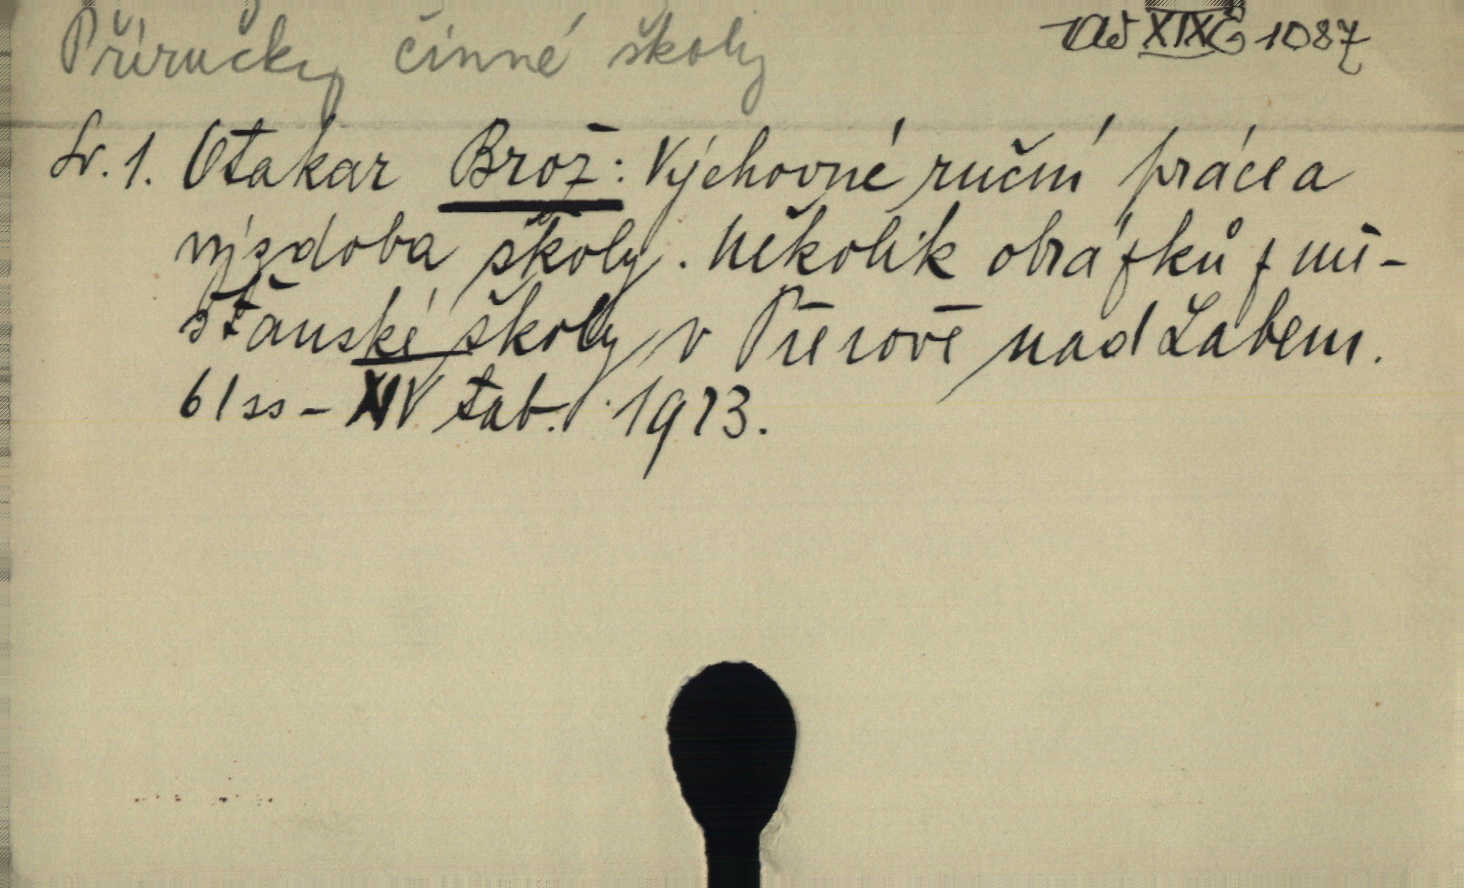 Příručky činné školy
Ad XIX E 1087
Sv. 1. Otakar Brož: Výchovné ruční práce a
výzdoba školy. Několik obrázků z mě-
šťanské školy v Přerově nad Labem.
61 ss - XIV tab. 1913.